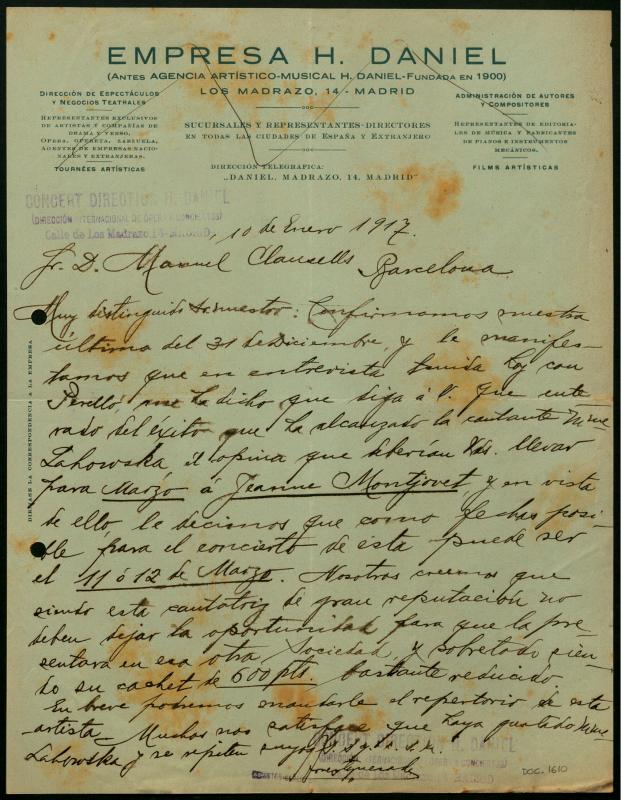 EMPRESA H. DANIEL
(ANTES AGENCIA ARTÍSTICO-MUSICAL H. DANIEL-FUNDADA EN 1900)
LOS MADRAZO, 14 - MADRID
DIRECCIÓN DE ESPECTÁCULOS
Y NEGOCIOS TEATRALES
REPRESENTANTES EXCLUSIVOS
DE ARTISTAS Y COMPAÑÍAS DE
DRAMA Y VERSO,
OPERA, OPERETA, ZARZUELA,
AGENTES DE EMPRESAS NACIO-
NALES Y EXTRANJERAS.
TOURNÉES ARTÍSTICAS
SUCURSALES Y REPRESENTANTES-DIRECTORES
EN TODAS LAS CIUDADES DE ESPAÑA Y EXTRANJERO
DIRECCIÓN TELEGRÁFICA:
„DANIEL, MADRAZO, 14, MADRID"
ADMINISTRACIÓN DE AUTORES
Y COMPOSITORES
REPRESENTANTES DE EDITORIA-
LES DE MÚSICA Y FABRICANTES
DE PIANOS E INSTRUMENTOS
MECÁNICOS.
FILMS ARTÍSTICAS
CONCERT DIRECTION H. DANIEL
(DIRECCIÓN INTERNACIONAL DE OPERA & CONCIERTOS)
Calle de Los Madrazo, 14-MADRID
10 de Enero 1917.
Sr. D. Manuel Clausells Barcelona
Muy distinguido Sr. nuestro: Confirmamos nuestra
última del 31 de Diciembre, y le manifes-
tamos que en entrevista tenida hoy con
Perelló, me ha dicho que diga á V. que ente
rado del exito que ha alcanzado la cantante Mme
Lahowska, él opina que deberían Vds. llevar
para Marzo á Jeanne Montjovet, y en vista
de ello, le decimos que como fechas posi-
ble para el concierto de ésta puede ser
el 11 ó 12 de Marzo. Nosotros creemos que
siendo esta cantatriz de gran reputación no
deben dejar la oportunidad para que la pre
sentara en esa otra Sociedad, y sobretodo sien-
do su cachet de 600 pts. bastante reducido
En breve podremos mandarle el repertorio de esta
artista. Mucho nos satisface que haya gustado Mme
Lahowska y se repiten suyos
CONCERT DIRECTION H. DANIEL
DIRÍJASE LA CORRESPONDENCIA A LA EMPRESA
DOC. 1610